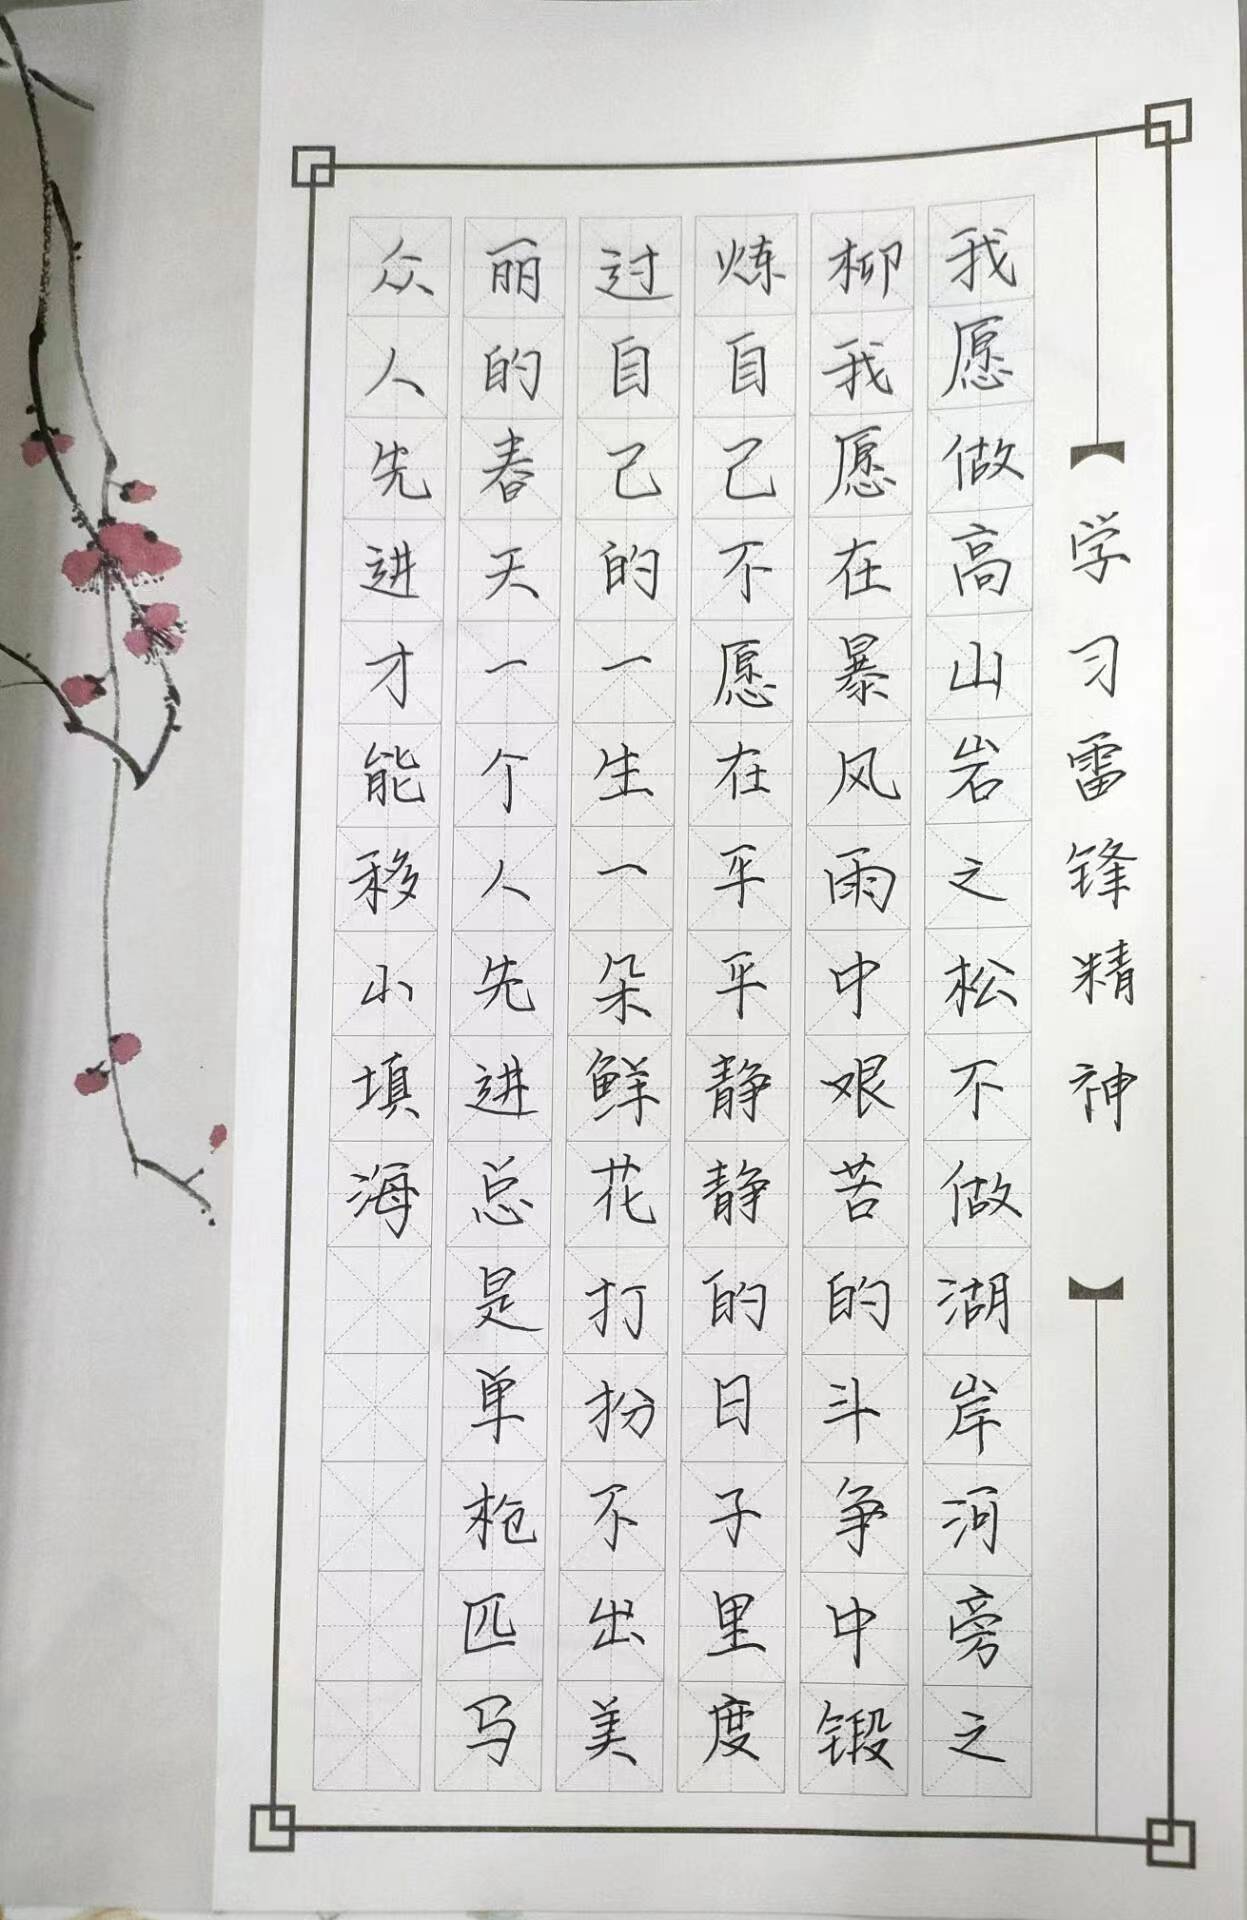 学习雷锋精神
我愿做高山岩之松不做湖岸河旁之
柳我愿在暴风雨中艰苦的斗争中锻
炼自己不愿在平平静静的日子里度
过自己的一生一朵鲜花打扮不出美
丽的春天一个人先进总是单枪匹马
众人先进才能移山填海